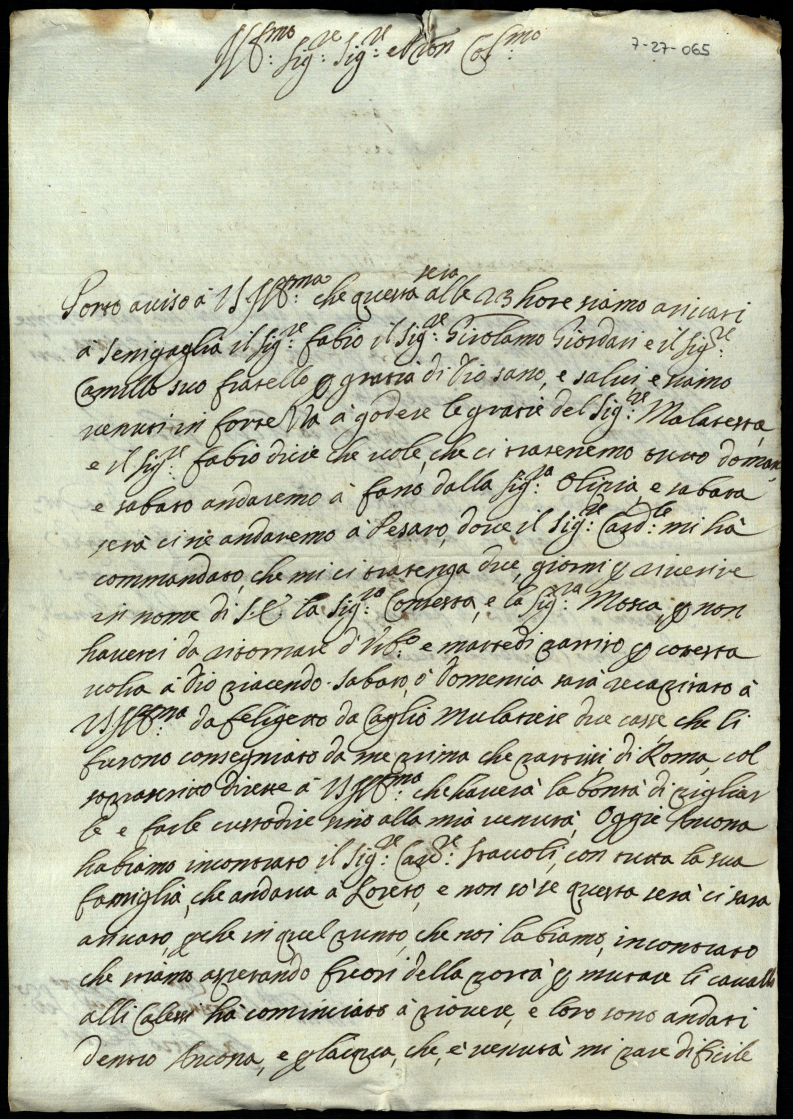 Ill:mo Sig:re Sig:re e Pron Col:mo
7-27-065
Porto aviso à VS Ill:ma che questa sera alle 23 hore siamo arivati
à Senigaglia il Sig:re Fabio il Sig:re Girolamo Giordani e il Sig:re
Camillo suo fratello p gratia di Dio sano, e salui, e siamo
venuti in forre à godere le gratie del Sig:re Malatesta,
e il Sig:re Fabio dicie che uole, che ci trateremo tutto doman,
e sabato andaremo à Fano dalla Sig:ra Olipia, e sabata
serà ci ne andaremo à Pesaro, doue il Sig:re Card:le mi hà
commandato, che mi ci tratenga due, giorni p riuerire
in nome di S.E. la Sig:ra Contessa, e la Sig:ra Mosca, p non
hauerci da ritornare d'Urb:o e martedi partiro p cotesta
uolta à Dio piacendo. Sabato, ò domenica sarà recapitato à
VS Ill:ma da Feligetto da Caglio Mulatiere due casse che li
furono consegniate da me prima che partissi di Roma, col
soprascritto dirette à VS Ill:ma che hauerà la bontà di pigliar
le e farle custodire sino alla mià venutà, Oggi è Ancona
habiamo incontrato il Sig:re Card:le Fracoli, con tutta la sua
famiglia, che andaua à Loreto, e non sò se questa serà ci sara
ariuato, pche in quel punto, che noi labiamo, incontrato
che stiamo aspetando fuori della portà p mutare li caualli
alli Calessi hà cominciato à piouere, e loro sono andati
dentro Ancona, e p lacqua, che, è venutà mi pare dificile